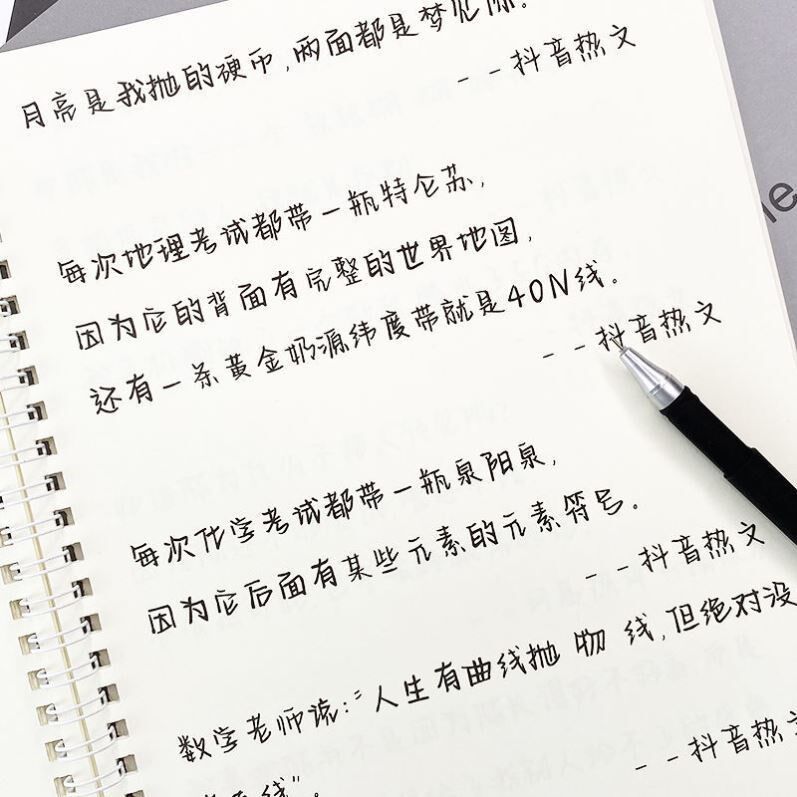 月亮是我抛的硬币,两面都是梦见你.
--抖音热文
每次地理考试都带一瓶特仑苏,
因为它的背面有完整的世界地图,
还有一条黄金奶源纬度带就是40N线。
--抖音热文
每次化学考试都带一瓶泉阳泉,
因为它后面有某些元素的元素符号。
--抖音热文
数学老师说:"人生有曲线抛物线,但绝对没
线"。
--抖音热文